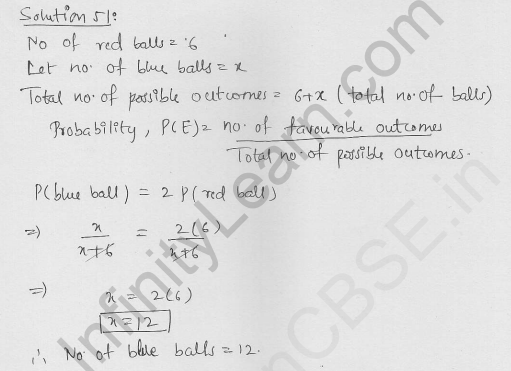 Solution 51:
No of red balls = 6
Let no. of blue balls = x
Total no. of possible outcomes = 6+x (total no. of balls)
Probability, P(E) = no. of favourable outcomes
Total no of possible outcomes.
P(blue ball) = 2 P(red ball)
⇒) x/x+6 = 2(6)/x+6
⇒) x = 2(6)
x = 12
∴ No. of blue balls = 12.
InfinityLearn.com
nCBSE.in